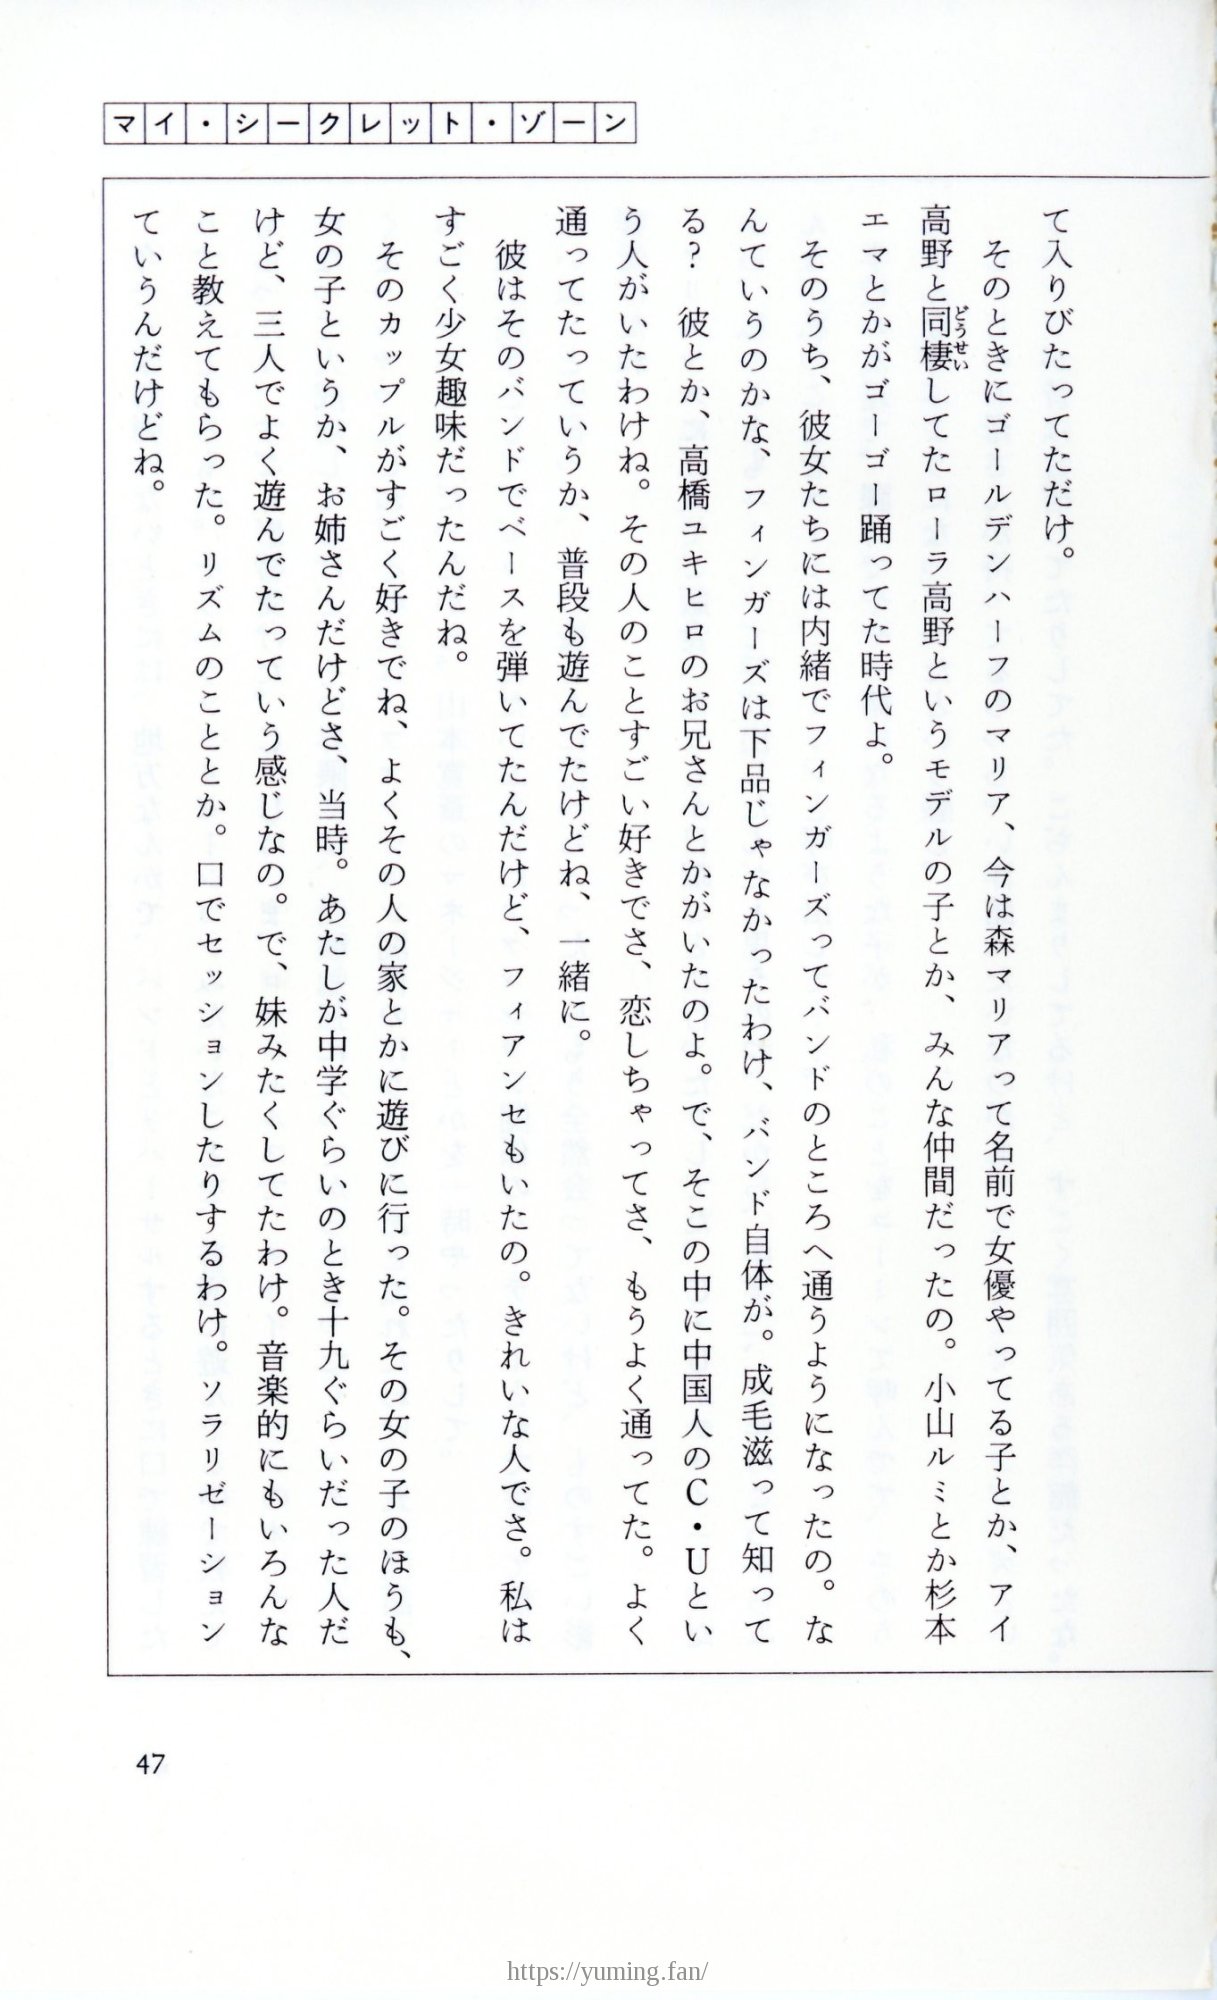 マイ・シークレット・ゾーン
て入りびたってただけ。
そのときにゴールデンハーフのマリア、今は森マリアって名前で女優やってる子とか、アイ
高野と同棲してたローラ高野というモデルの子とか、みんな仲間だったの。小山ルミとか杉本
どうせい
エマとかがゴーゴー踊ってた時代よ。
そのうち、彼女たちには内緒でフィンガーズってバンドのところへ通うようになったの。な
んていうのかな、フィンガーズは下品じゃなかったわけ、バンド自体が。成毛滋って知って
る？　彼とか、高橋ユキヒロのお兄さんとかがいたのよ。で、そこの中に中国人のC・Uとい
う人がいたわけね。その人のことすごい好きでさ、恋しちゃってさ、もうよく通ってた。よく
通ってたっていうか、普段も遊んでたけどね、一緒に。
彼はそのバンドでベースを弾いてたんだけど、フィアンセもいたの。きれいな人でさ。私は
すごく少女趣味だったんだね。
そのカップルがすごく好きでね、よくその人の家とかに遊びに行った。その女の子のほうも、
女の子というか、お姉さんだけどさ、当時。あたしが中学ぐらいのとき十九ぐらいだった人だ
けど、三人でよく遊んでたっていう感じなの。で、妹みたくしてたわけ。音楽的にもいろんな
こと教えてもらった。リズムのこととか。口でセッションしたりするわけ。ソラリゼーション
ていうんだけどね。
47
https://yuming.fan/